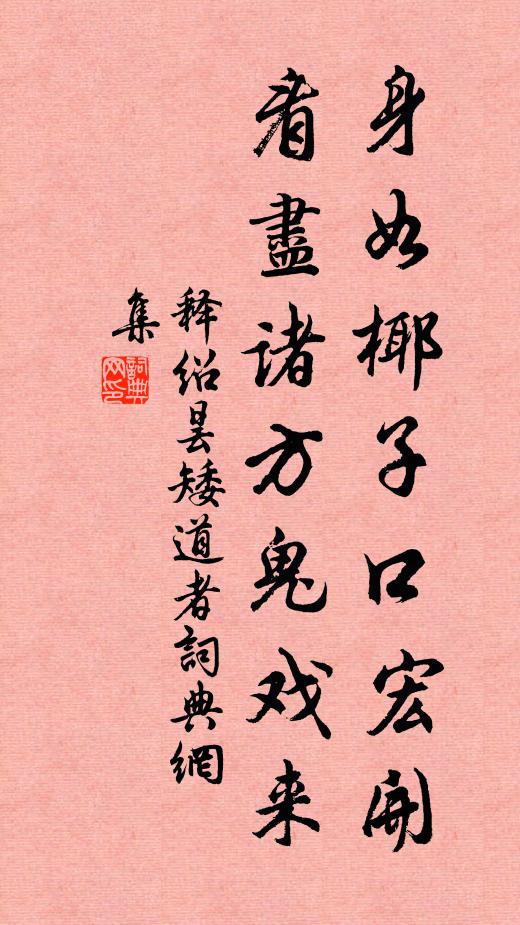 身如椰子口宏開
看盡诸方鬼戏来
释绍昙矮道者詞典網
集
詞典
网印